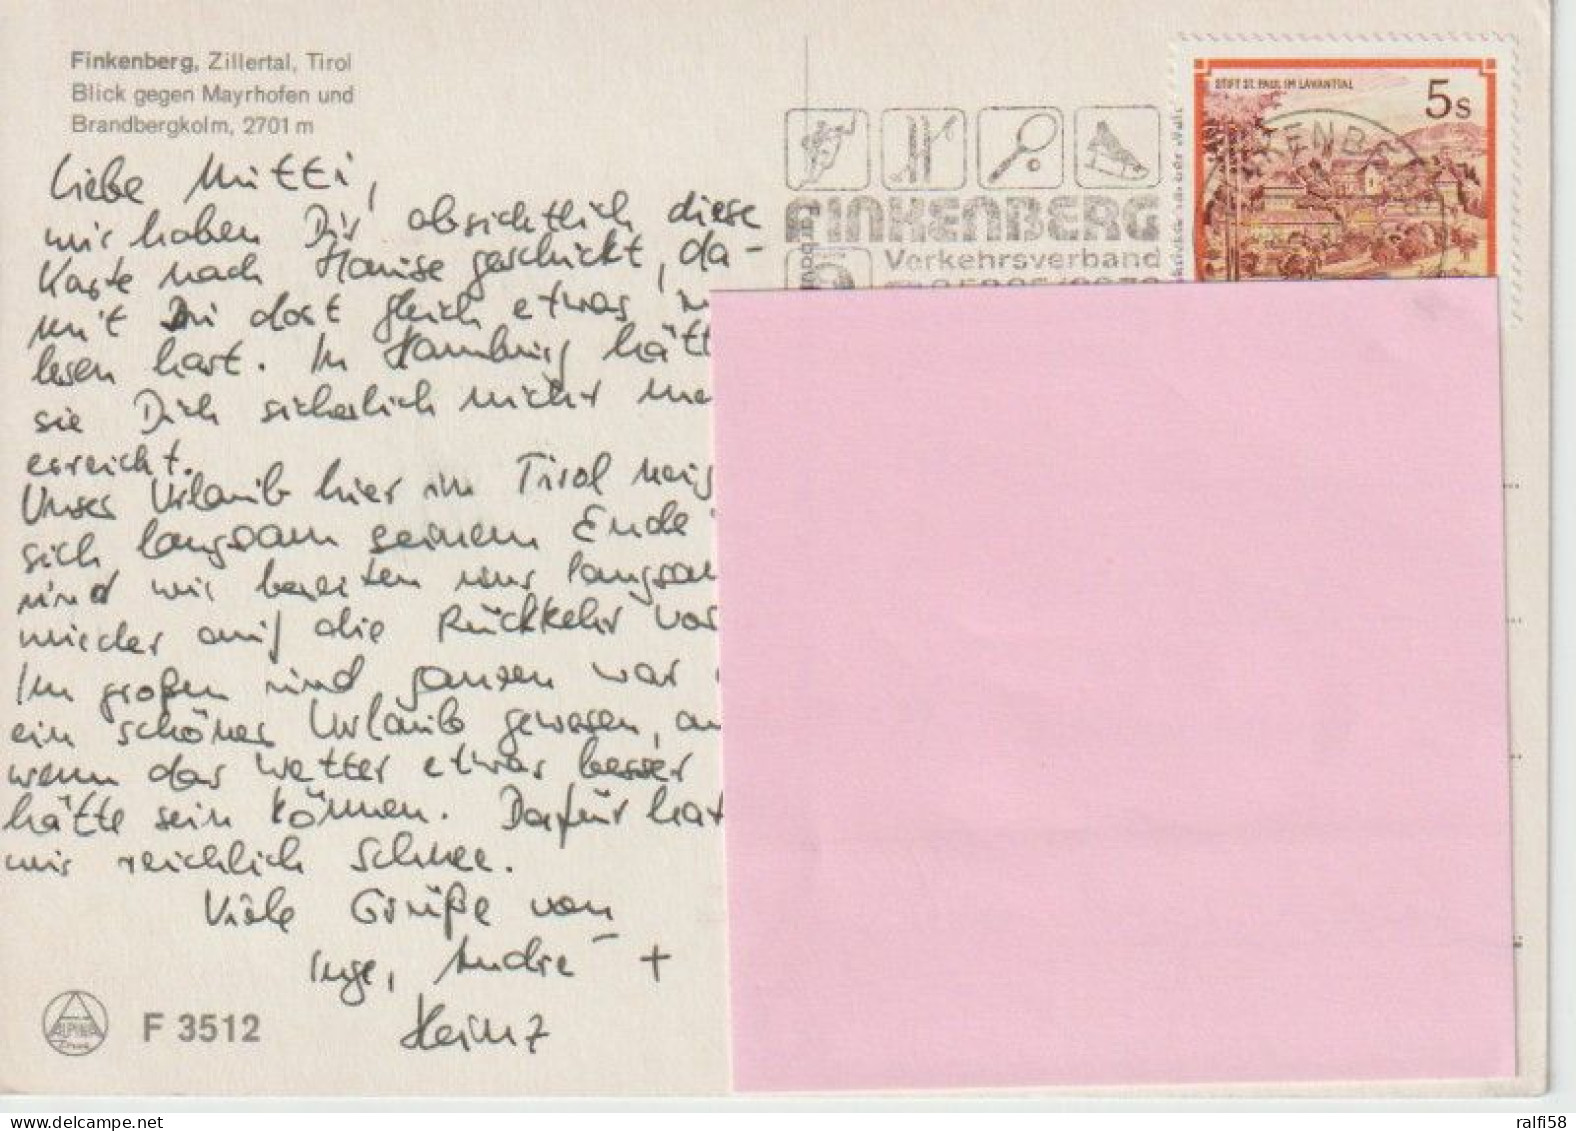 Finkenberg, Zillertal, Tirol
Blick gegen Mayrhofen und
Brandbergkolm, 2701 m
Liebe Mutti,
wir haben Dir absichtlich diese
Karte nach Hause geschickt, da-
mit Du dort gleich etwas
lesen hast. In Hamburg hätt
sie Dich sicherlich nicht me
erreicht.
Unser Urlaub hier in Tirol neig
sich langsam seinem Ende
und wir bereiten uns langsam
wieder auf die Rückkehr vor
Im großen und ganzen war
ein schöner Urlaub gewesen, au
wenn das Wetter etwas besser
hätte sein können. Dafür hat
wir reichlich Schnee.
Viele Grüße von
Inge, André +
Heinz
ALPINA
F 3512
FINKENBERG
Verkehrsverband
STIFT ST. PAUL IM LAVANTTAL
5s
ralfi58